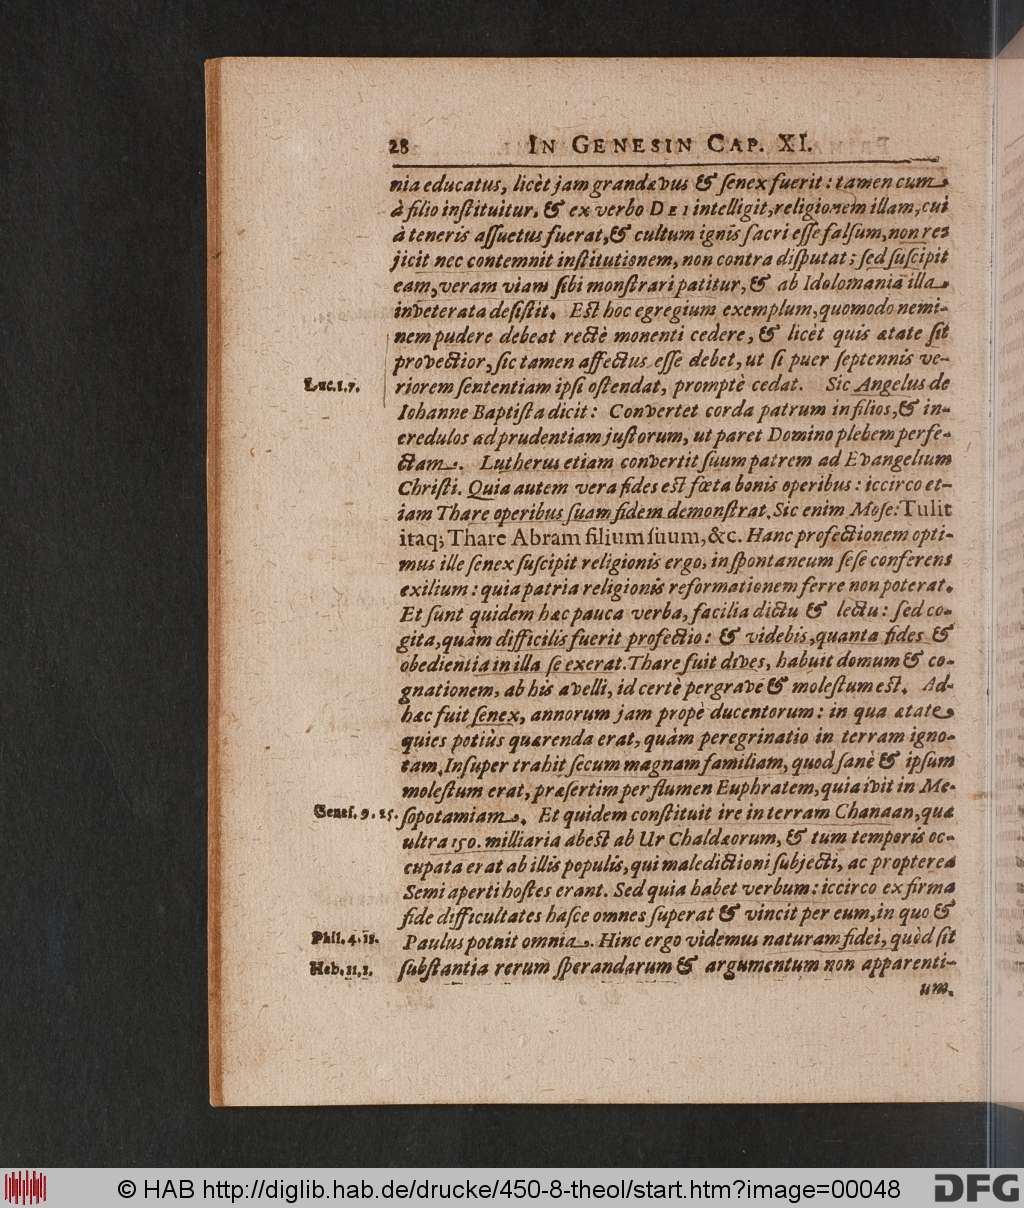 28 IN GENESIN CAP. XI.
nia educatus, licèt jam grandævus & ſenex fuerit: tamen cum
à filio inſtituitur, & ex verbo DEI intelligit, religionem illam, cui
à teneris aſſuetus fuerat, & cultum ignis ſacri eſſe falſum, non re-
jicit nec contemnit inſtitutionem, non contra diſputat; ſed ſuſcipit
eam, veram viam ſibi monſtrari patitur, & ab Idolomania illa
inveterata deſiſtit. Eſt hoc egregium exemplum, quomodo nemi-
nem pudere debeat rectè monenti cedere, & licèt quis ætate ſit
provectior, ſic tamen affectus eſſe debet, ut ſi puer ſeptennis ve-
Luc. 1. 7. riorem ſententiam ipſi oſtendat, promptè cedat. Sic Angelus de
Iohanne Baptiſta dicit: Convertet corda patrum in filios, & in-
credulos ad prudentiam juſtorum, ut paret Domino plebem perfe-
ctam. Lutherus etiam convertit ſuum patrem ad Evangelium
Chriſti. Quia autem vera fides eſt fœta bonis operibus: iccirco et-
iam Thare operibus ſuam fidem demonſtrat. Sic enim Moſe: Tulit
itaq; Thare Abram filium ſuum, &c. Hanc profectionem opti-
mus ille ſenex ſuſcipit religionis ergo, in ſpontaneum ſeſe conferens
exilium: quia patria religionis reformationem ferre non poterat.
Et ſunt quidem hæc pauca verba, facilia dictu & lectu: ſed co-
gita, quàm difficilis fuerit profectio: & videbis, quanta fides &
obedientia in illa ſe exerat. Thare fuit dives, habuit domum & co-
gnationem, ab his avelli, id certè pergravè & moleſtum eſt. Ad-
hæc fuit ſenex, annorum jam propè ducentorum: in qua ætate
quies potiùs quærenda erat, quàm peregrinatio in terram igno-
tam. Inſuper trahit ſecum magnam familiam, quod ſanè & ipſum
moleſtum erat, præſertim per flumen Euphratem, quia ivit in Me-
Geneſ. 9. 25. ſopotamiam. Et quidem conſtituit ire in terram Chanaan, quæ
ultra 150. milliaria abeſt ab Ur Chaldæorum, & tum temporis oc-
cupata erat ab illis populis, qui maledictioni ſubjecti, ac propterea
Semi aperti hoſtes erant. Sed quia habet verbum: iccirco ex firma
fide difficultates haſce omnes ſuperat & vincit per eum, in quo &
Phil. 4. 13. Paulus potuit omnia. Hinc ergo videmus naturam fidei, quòd ſit
Heb. 11, 1. ſubſtantia rerum ſperandarum & argumentum non apparenti-
um.
© HAB http://diglib.hab.de/drucke/450-8-theol/start.htm?image=00048 DFG